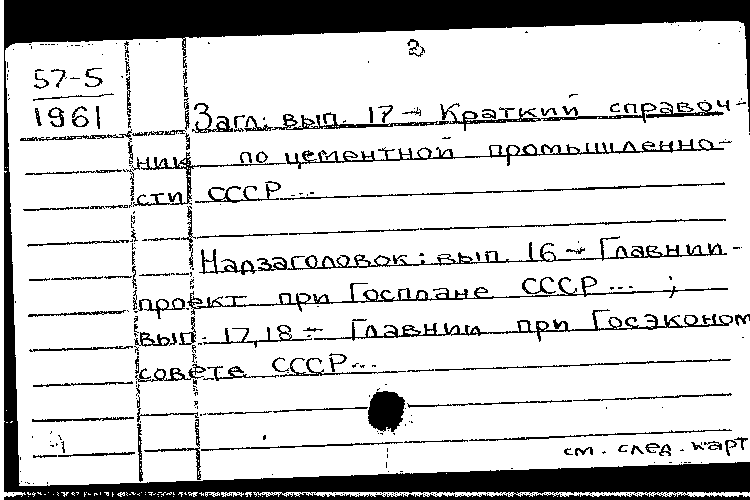 3
57-5
1961
Загл: вып. 17 - Краткий справоч-
ник по цементной промышленно-
сти СССР...
Надзаголовок: вып. 16 - Главнии-
проект при Госплане СССР... ;
вып. 17,18 - Главнии при Госэконом
совете СССР...
см. след. карт